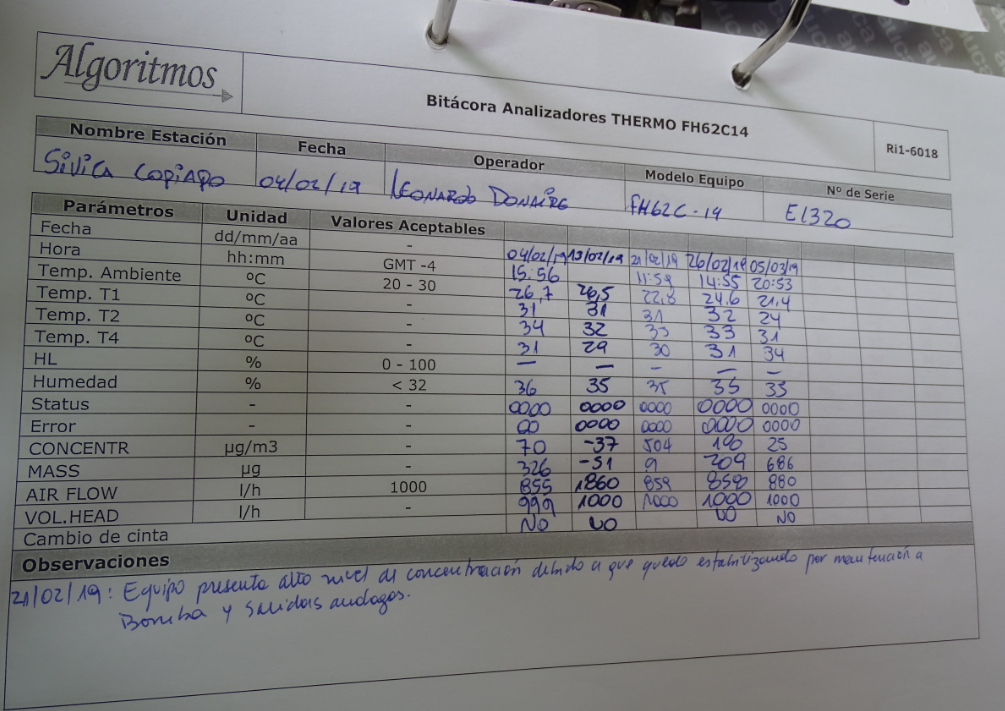 Algoritmos
Bitácora Analizadores THERMO FH62C14
Ri1-6018
Nombre Estación Fecha Operador Modelo Equipo Nº de Serie
Sivica Copiapo 04/02/19 Leonardo Donaire FH62C-19 E1320
Parámetros Unidad Valores Aceptables
Fecha dd/mm/aa - 04/02/19 13/02/19 21/02/19 26/02/19 05/03/19
Hora hh:mm GMT -4 15:56 11:59 14:55 20:53
Temp. Ambiente ºC 20 - 30 26,7 26,5 22,8 24.6 21,4
Temp. T1 ºC - 31 31 31 32 24
Temp. T2 ºC - 34 32 33 33 31
Temp. T4 ºC - 31 29 30 31 34
HL % 0 - 100 — — — — —
Humedad % < 32 36 35 35 35 35
Status - - 0000 0000 0000 0000 0000
Error - - 00 0000 0000 0000 0000
CONCENTR µg/m3 - 70 -37 504 190 25
MASS µg - 326 -51 9 209 686
AIR FLOW l/h 1000 855 1860 859 858 880
VOL.HEAD l/h - 999 1000 1000 1000 1000
Cambio de cinta NO NO NO NO
Observaciones
21/02/19: Equipo presenta alto nivel de concentración debido a que quedo estabilizando por mantención a
Bomba y Salidas analogas.